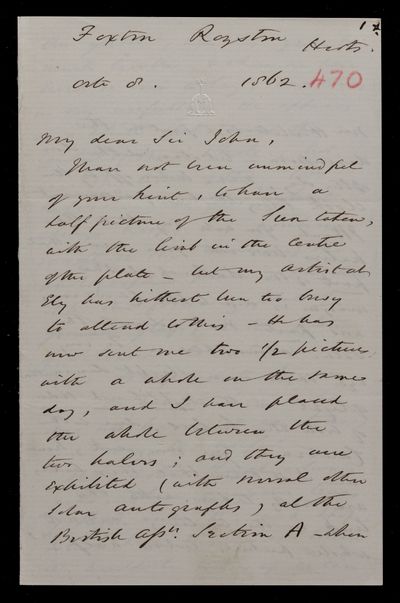 1
Foxton Royston Herts.
Oct 8. 1862. 470
My dear Sir John,
I have not been unmindful
of your hint, to have a
half picture of the Sun taken,
with the limb in the centre
of the plate – but my artist at
Ely has hitherto been too busy
to attend to this – He has
now sent me two 1/2 pictures
with a whole on the same
day, and I have placed
the whole between the
two halves; and they were
exhibited (with several other
Solar autographs) at the
British Assn. Section A – when